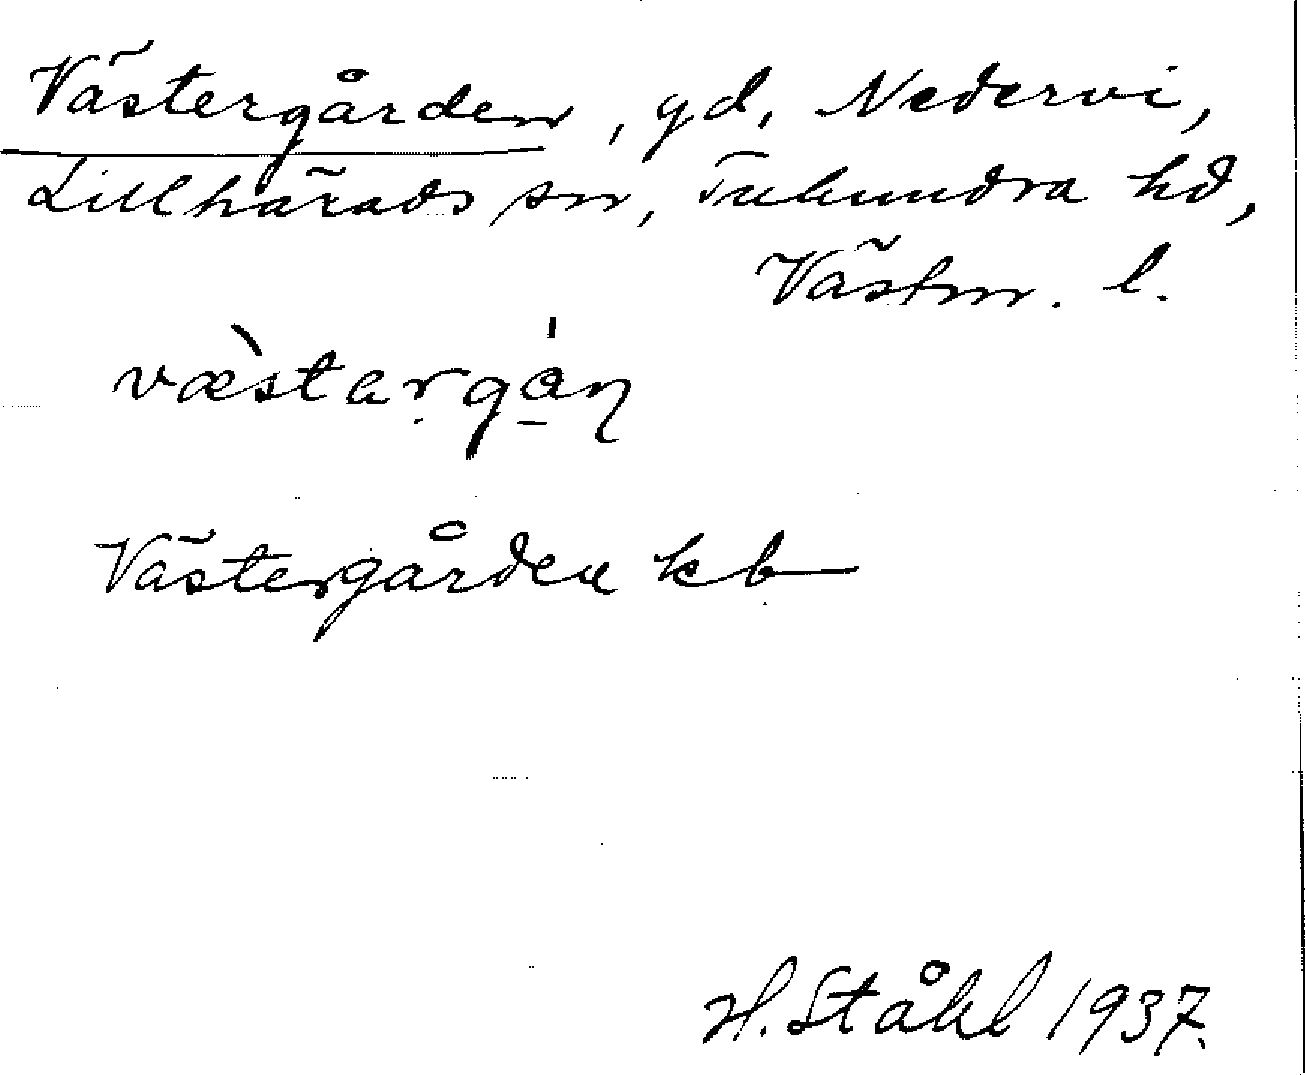 Västergården, gd, Nedervi,
Lillhärads sn, Tuhundra hd,
Västm. l.
væ̀starg
Västergården kb
H. Ståhl 1937.